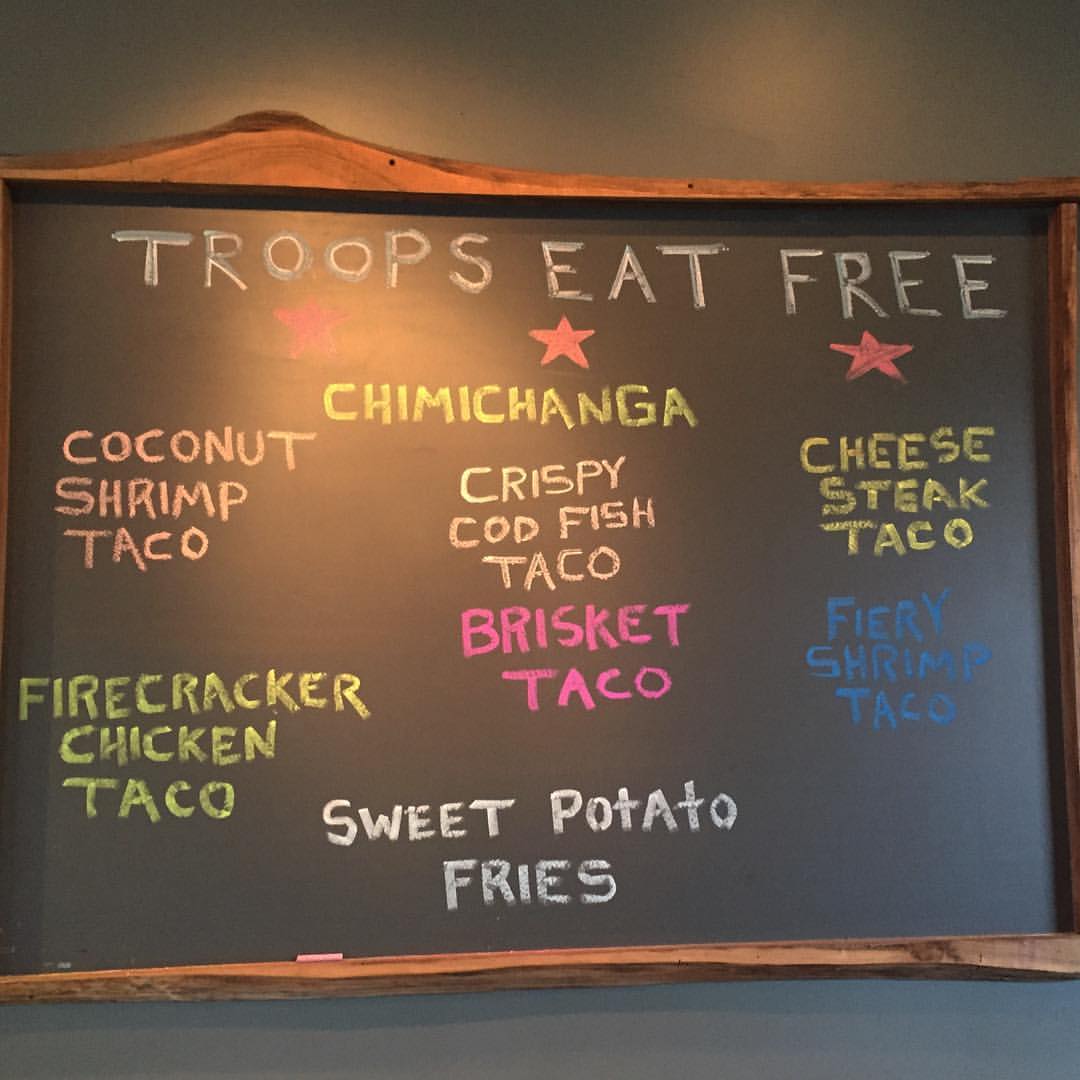 TROOPS EAT FREE
CHIMICHANGA
COCONUT
SHRIMP
TACO
CRISPY
COD FISH
TACO
CHEESE
STEAK
TACO
BRISKET
TACO
FIERY
SHRIMP
TACO
FIRECRACKER
CHICKEN
TACO
SWEET PotAto
FRIES